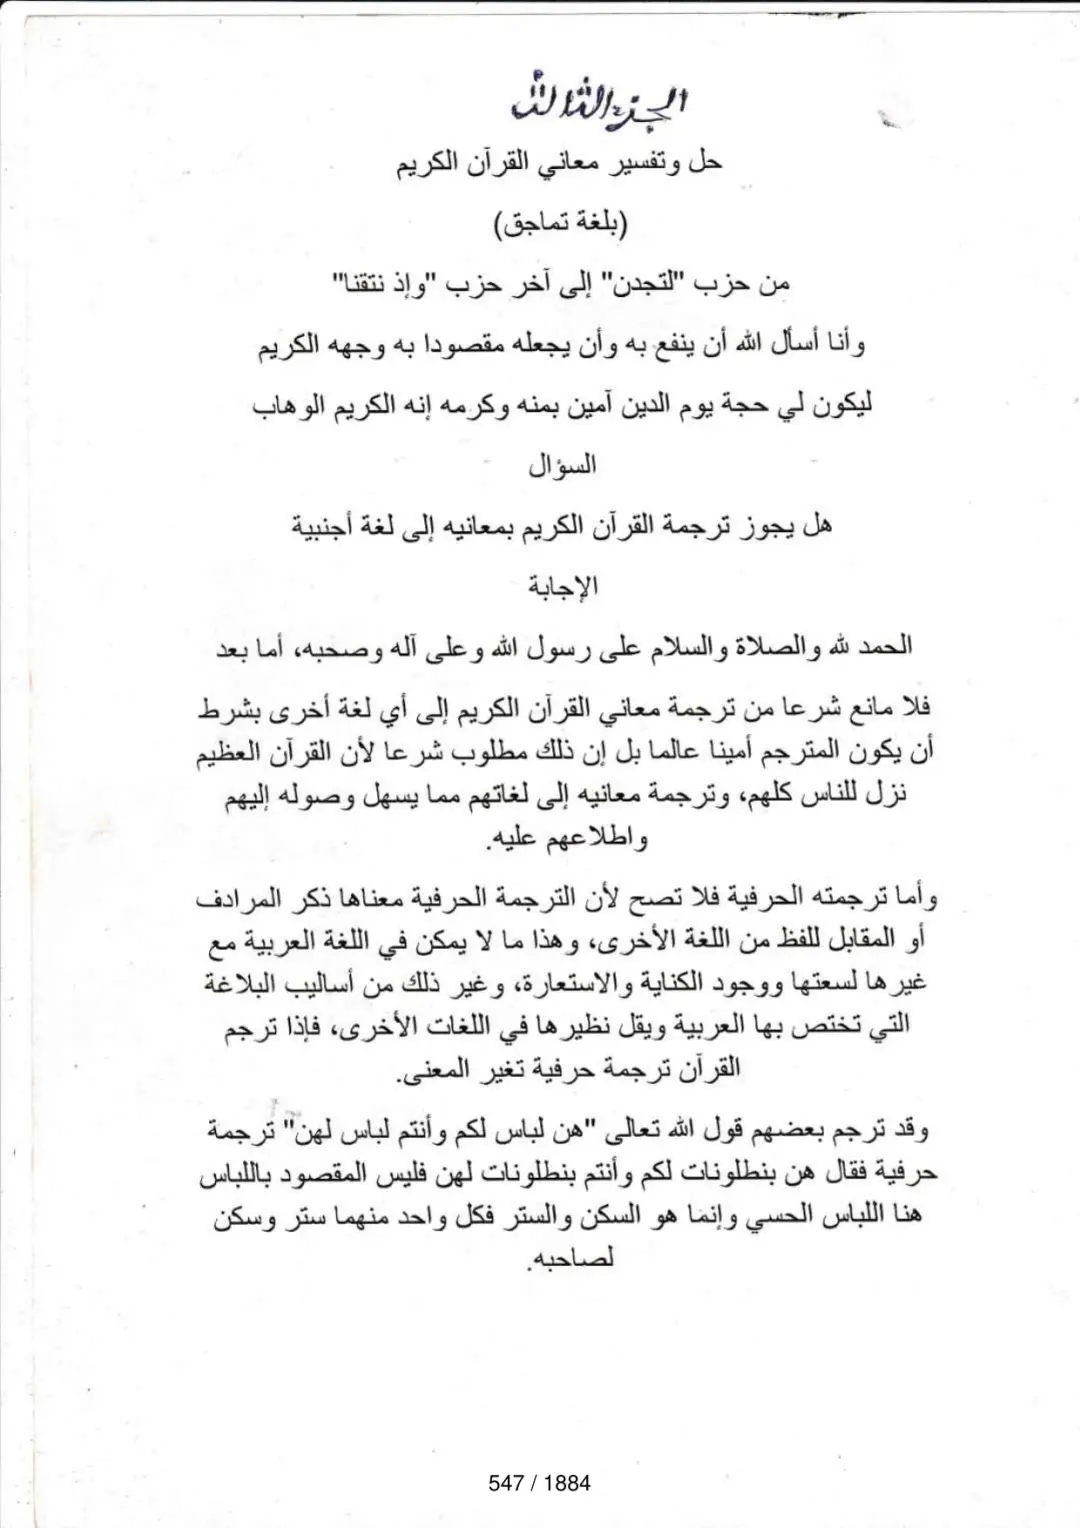 الجزء الثالث
حل وتفسير معاني القرآن الكريم
(بلغة تماجق)
من حزب "لتجدن" إلى آخر حزب "وإذ نتقنا"
وأنا أسأل الله أن ينفع به وأن يجعله مقصودا به وجهه الكريم
ليكون لي حجة يوم الدين آمين بمنه وكرمه إنه الكريم الوهاب
السؤال
هل يجوز ترجمة القرآن الكريم بمعانيه إلى لغة أجنبية
الإجابة
الحمد لله والصلاة والسلام على رسول الله وعلى آله وصحبه، أما بعد
فلا مانع شرعا من ترجمة معاني القرآن الكريم إلى أي لغة أخرى بشرط
أن يكون المترجم أمينا عالما بل إن ذلك مطلوب شرعا لأن القرآن العظيم
نزل للناس كلهم، وترجمة معانيه إلى لغاتهم مما يسهل وصوله إليهم
واطلاعهم عليه.
وأما ترجمته الحرفية فلا تصح لأن الترجمة الحرفية معناها ذكر المرادف
أو المقابل للفظ من اللغة الأخرى، وهذا ما لا يمكن في اللغة العربية مع
غيرها لسعتها ووجود الكناية والاستعارة، وغير ذلك من أساليب البلاغة
التي تختص بها العربية ويقل نظيرها في اللغات الأخرى، فإذا ترجم
القرآن ترجمة حرفية تغير المعنى.
وقد ترجم بعضهم قول الله تعالى "هن لباس لكم وأنتم لباس لهن" ترجمة
حرفية فقال هن بنطلونات لكم وأنتم بنطلونات لهن فليس المقصود باللباس
هنا اللباس الحسي وإنما هو السكن والستر فكل واحد منهما ستر وسكن
لصاحبه.
547 / 1884